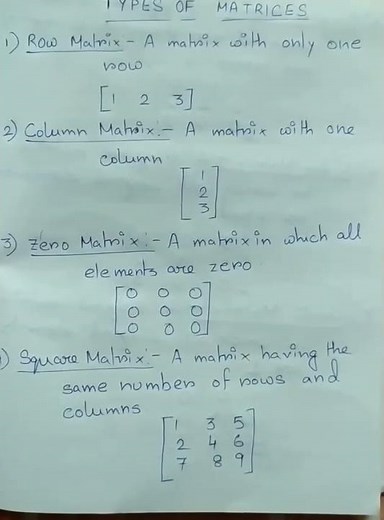 TYPES OF MATRICES
1) Row Matrix - A matrix with only one
row
[1 2 3]
2) Column Matrix :- A matrix with one
column
[1
2
3]
3) Zero Matrix :- A matrix in which all
elements are zero
[0 0 0
0 0 0
0 0 0]
) Square Matrix :- A matrix having the
same number of rows and
columns
[1 3 5
2 4 6
7 8 9]